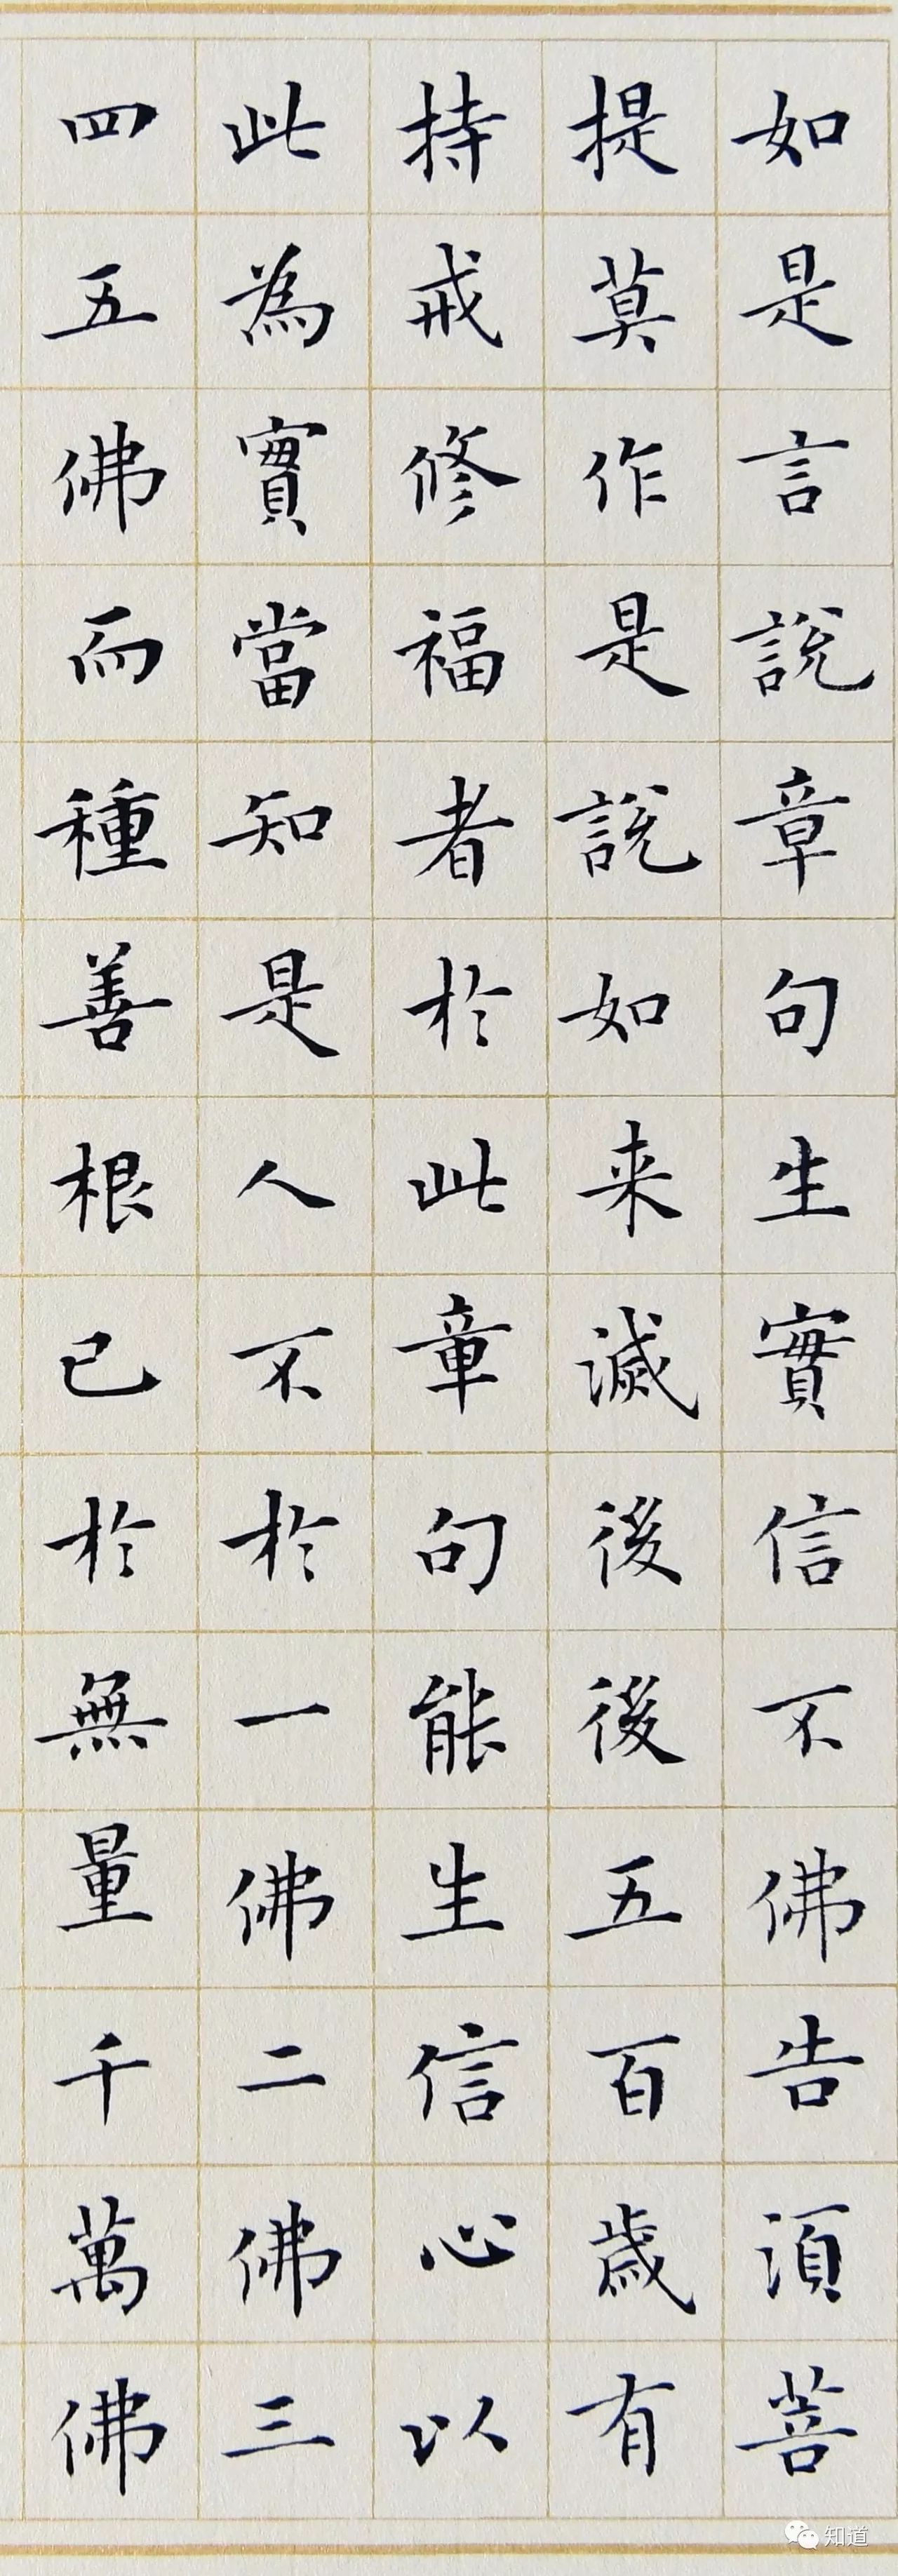 如是言說章句生實信不佛告須菩
提莫作是說如来滅後後五百歲有
持戒修福者於此章句能生信心以
此為實當知是人不於一佛二佛三
四五佛而種善根已於無量千萬佛
知道